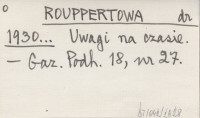 o
ROUPPERTOWA dr
1930... Uwagi na czasie.
- Gaz. Podh. 18, nr 27.